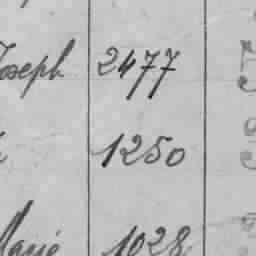 Joseph 2477
1250
Marie 1028